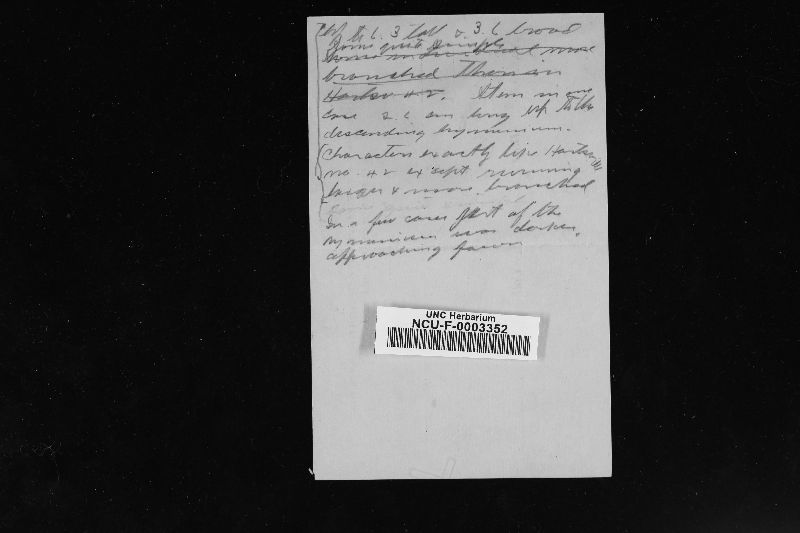 Up to 6.3 tall & 3.6 broad
Some quite simple
more
branched Than in
Hartsv # 2. Stem in one
case 2.6 cm long up to the
descending hymenium.
Characters exactly like Hartsv
no. # 2 except running
larger & more branched
In a few cases part of the
hymenium was darker,
approaching fawn
UNC Herbarium
NCU-F-0003352